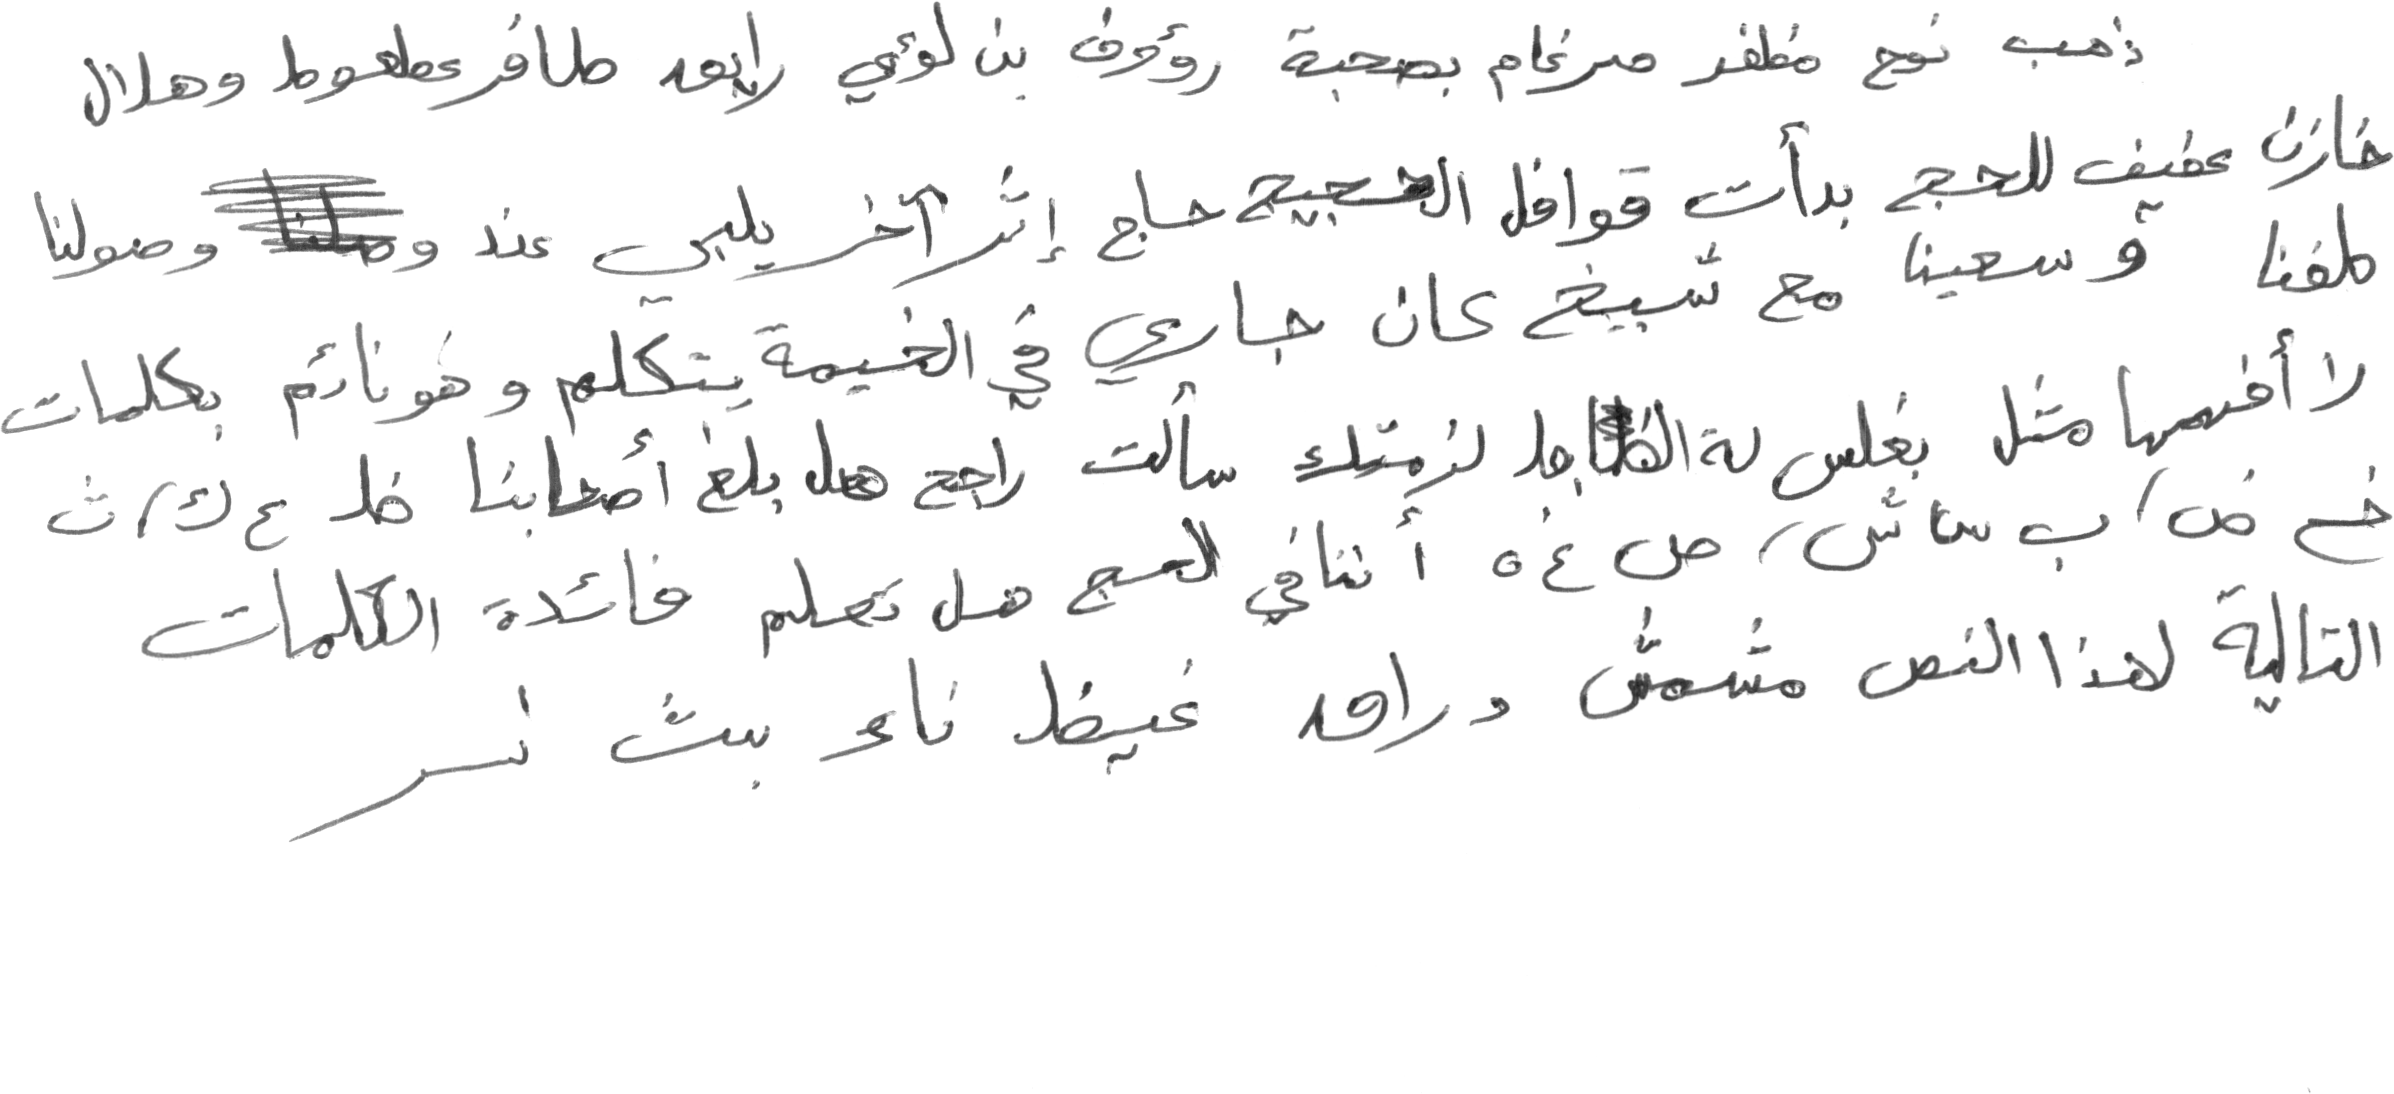 ذهب نوح مظفر ضرغام بصحبة رؤوف بن لؤي رايعه ظافر عطعوط وهلال
خازن عفيف للحج بدأت قوافل الحجيج حاج إثر آخر يلبي عند وصولنا
طفنا و سعينا مع شيخ كان جاري في الخيمة يتكلم وهو نائم بكلمات
لا أفهمها مثل بغلس لة لزمتك سألت راجح هل بلغ أصحابنا ظ ع ك/ ث
خ ض / ب سا ش / ص غ ه أننا في الحج هل تعلم فائدة الكلمات
التالية لهذا النص مشمش و راقد غيظ ناء بث نسر